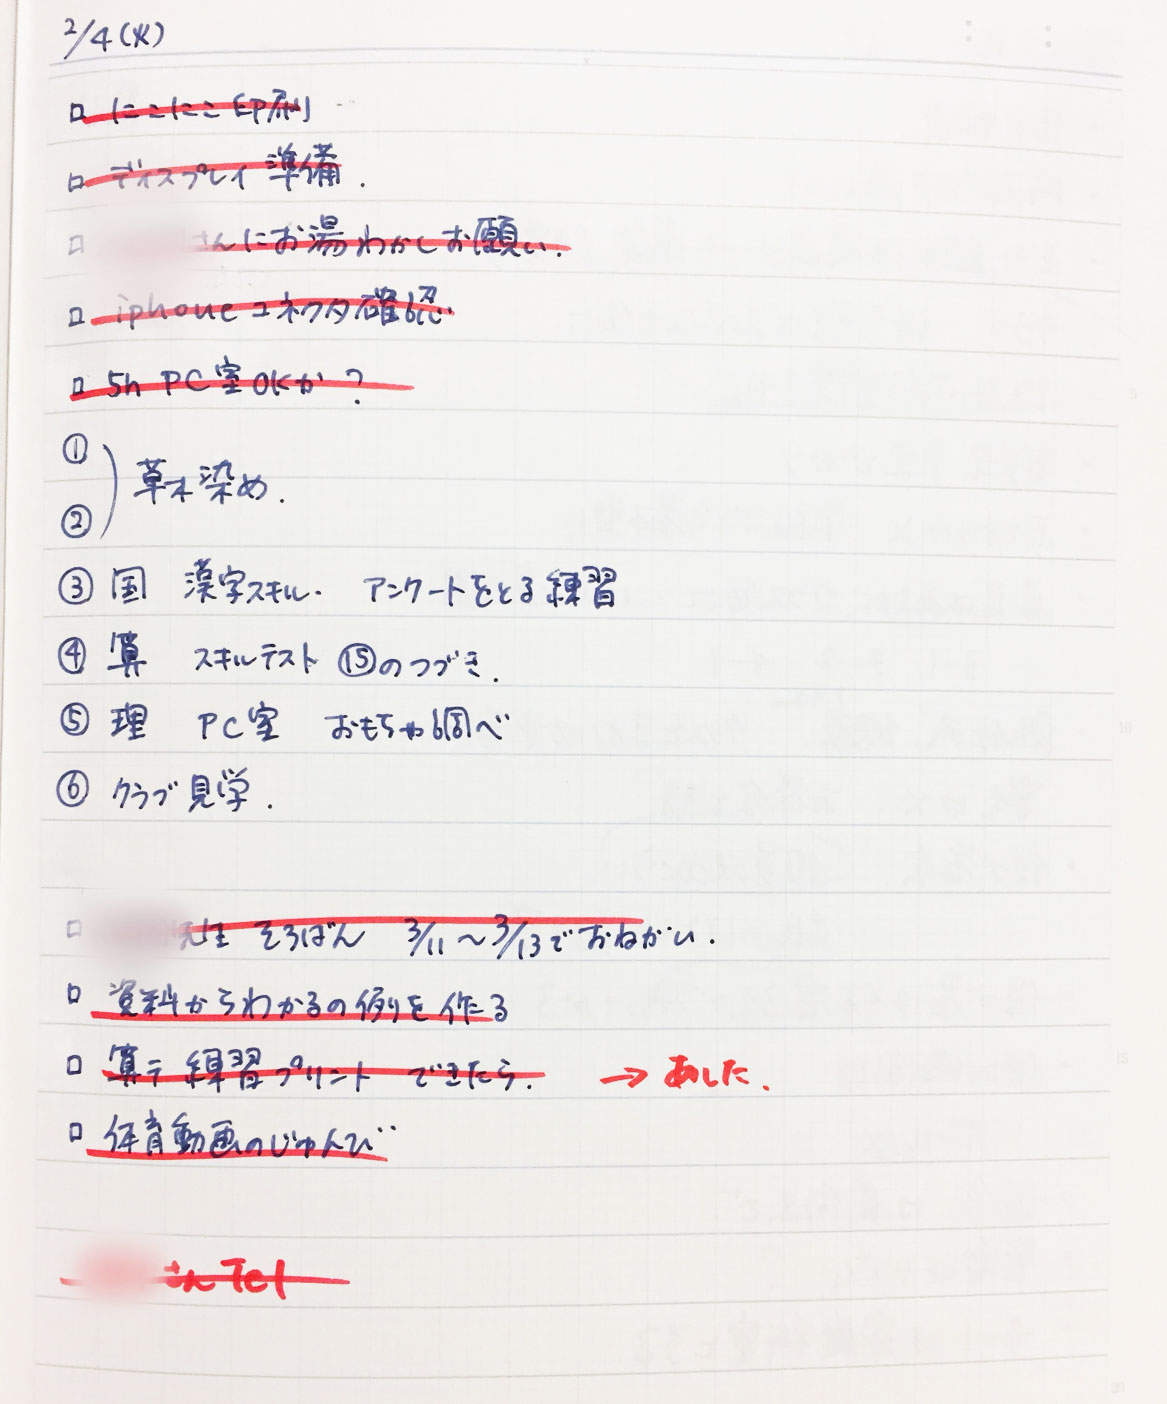 2/4(火)
□ にこにこ印刷
□ ディスプレイ 準備.
□ さんにお湯わかしお願い.
□ iphoneコネクタ確認
□ 5h PC室OKか?
①
② 草木染め.
③ 国 漢字スキル. アンケートをとる練習
④ 算 スキルテスト ⑮のつづき.
⑤ 理 PC室 おもちゃ調べ
⑥ クラブ見学.
□ 先生 そろばん 3/11〜3/13でおねがい.
□ 資料からわかるの例を作る
□ 算テ 練習プリント できたら. → あした.
□ 体育動画のじゅんび
さんTel